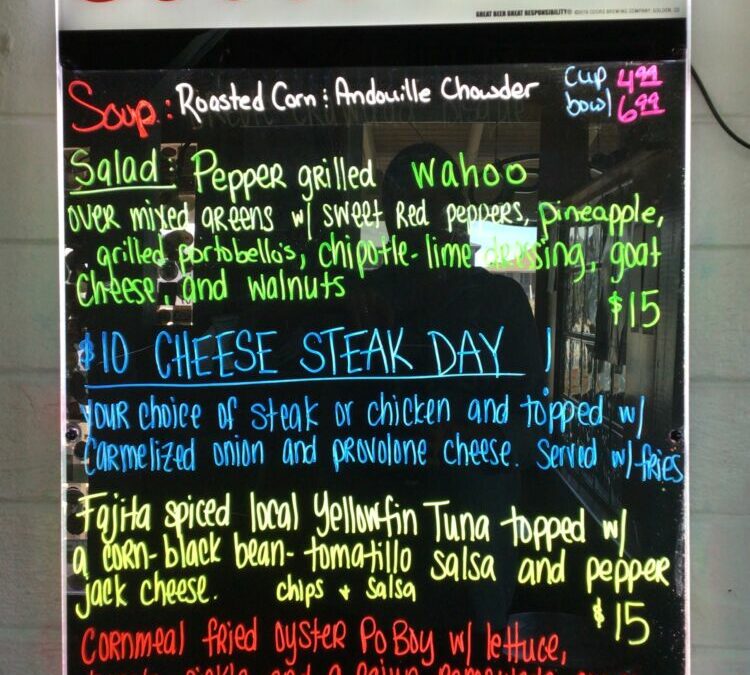 GREAT BEER GREAT RESPONSIBILITY® ©2014 COORS BREWING COMPANY, GOLDEN, CO
Soup: Roasted Corn & Andouille Chowder cup 4.99
bowl 6.99
Salad: Pepper grilled wahoo
over mixed greens w/ sweet Red peppers, pineapple,
grilled portobello's, chipotle-lime dressing, goat
cheese, and walnuts
$15
$10 CHEESE STEAK DAY!
your choice of steak or chicken and topped w/
carmelized onion and provolone cheese. Served w/ fries
Fajita spiced local Yellowfin Tuna topped w/
a corn-black bean-tomatillo salsa and pepper
jack cheese. chips + salsa
$15
Cornmeal fried oyster Po Boy w/ lettuce,
pickle and a cajun